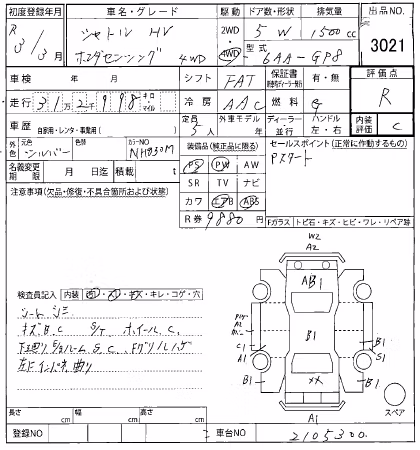 初度登録年月 車名・グレード 駆動 ドア数・形状 排気量 出品NO.
R 3/3月 シャトル HV 2WD 5 W 1500cc 3021
ホンダセンシング 4WD 4WD 型式 6AA-GP8
車検 年 月 シフト FAT 保証書 有・無 評価点
走行 31万2千998 キロ・マイル 冷房 AAC 燃料 G R
車歴 自家用・レンタ・事業用( ) 定員 5人 外車モデル 年 ディーラー・並行 ハンドル 左・右 内装評価 C
外色 元色 シルバー 色替 カラーNO NH830M 装備品(純正品に限る) セールスポイント(正常に作動するもの)
名義変更期限 月 日迄 積載 t PS PW AW Pスタート
注意事項(欠品・修復・不具合箇所および状態) SR TV ナビ
カワ エアB ABS
R券 9880円
Fガラス トビ石・キズ・ヒビ・ワレ・リペア跡
W2
A2
AB1
検査員記入 内装 キレ・コゲ・穴
シートシミ
キズB.C S/T ホイールC.
下廻りS/ルームS.C Fグリルハゲ
左下インパネ曲り
B1
C1
A1
B1
S1
B1
B1
メメ
A1
スペア
長さ cm 幅 cm 高さ cm
登録NO 車台NO 2105300